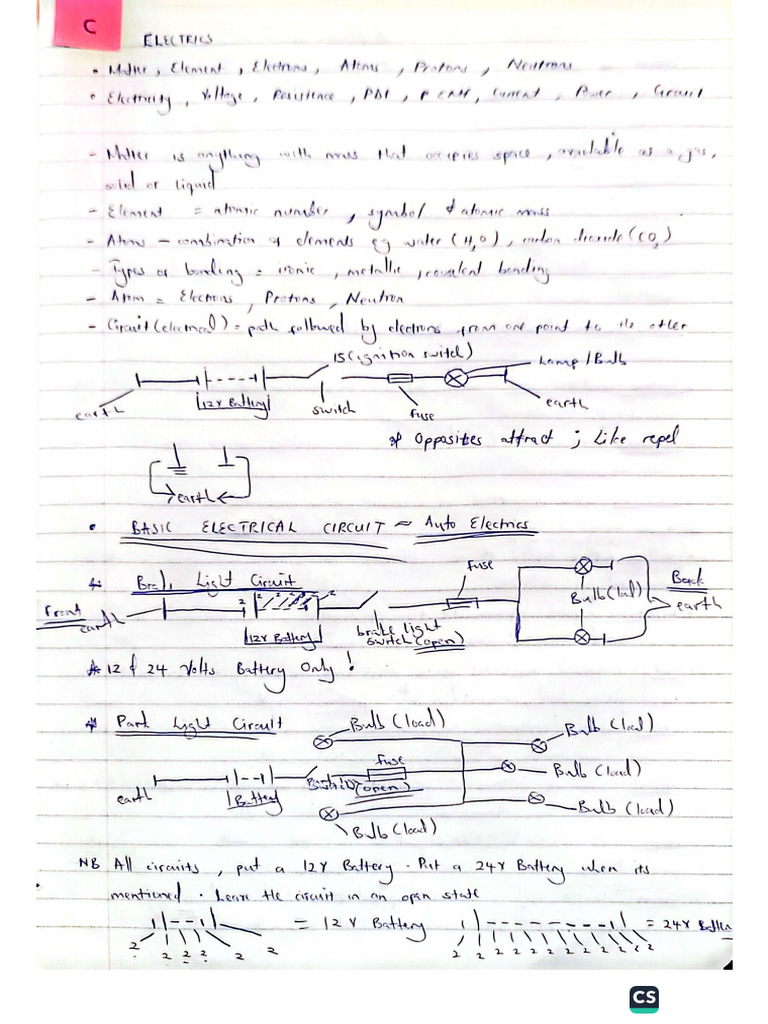 C
ELECTRICS
• Matter, Element, Electrons, Atoms, Protons, Neutrons
• Electricity, Voltage, Resistence, Pd, EMF, Current, Power, Circuit
- Matter is anything with mass that occupies space, available as a gas,
solid or liquid
- Element = atomic number, symbol & atomic mass
- Atoms - combination of elements eg water (H₂O), carbon dioxide (CO₂)
- Types of bonding = ironic, metallic, covalent bonding
- Atom = Electrons, Protons, Neutron
- Circuit (electrical) = path followed by electrons from one point to the other
IS (ignition switch)
Lamp / Bulb
earth
12V Battery
switch
fuse
earth
* Opposites attract ; Like repel
earth
• BASIC ELECTRICAL CIRCUIT ~ Auto Electrics
* Brake Light Circuit
fuse
Front
earth
2 2 2 2 2
12V Battery
brake light
switch (open)
Bulb (load)
Back
earth
* 12 & 24 Volts Battery Only!
* Park Light Circuit
Bulb (load)
Bulb (load)
fuse
earth
Battery
(open)
Bulb (load)
Bulb (load)
Bulb (load)
NB All circuits, put a 12V Battery. Put a 24V Battery when its
mentioned. Leave the circuit in an open state
= 12V Battery
= 24V Batter
2 2 2 2 2 2
2 2 2 2 2 2 2 2 2 2 2 2
CS